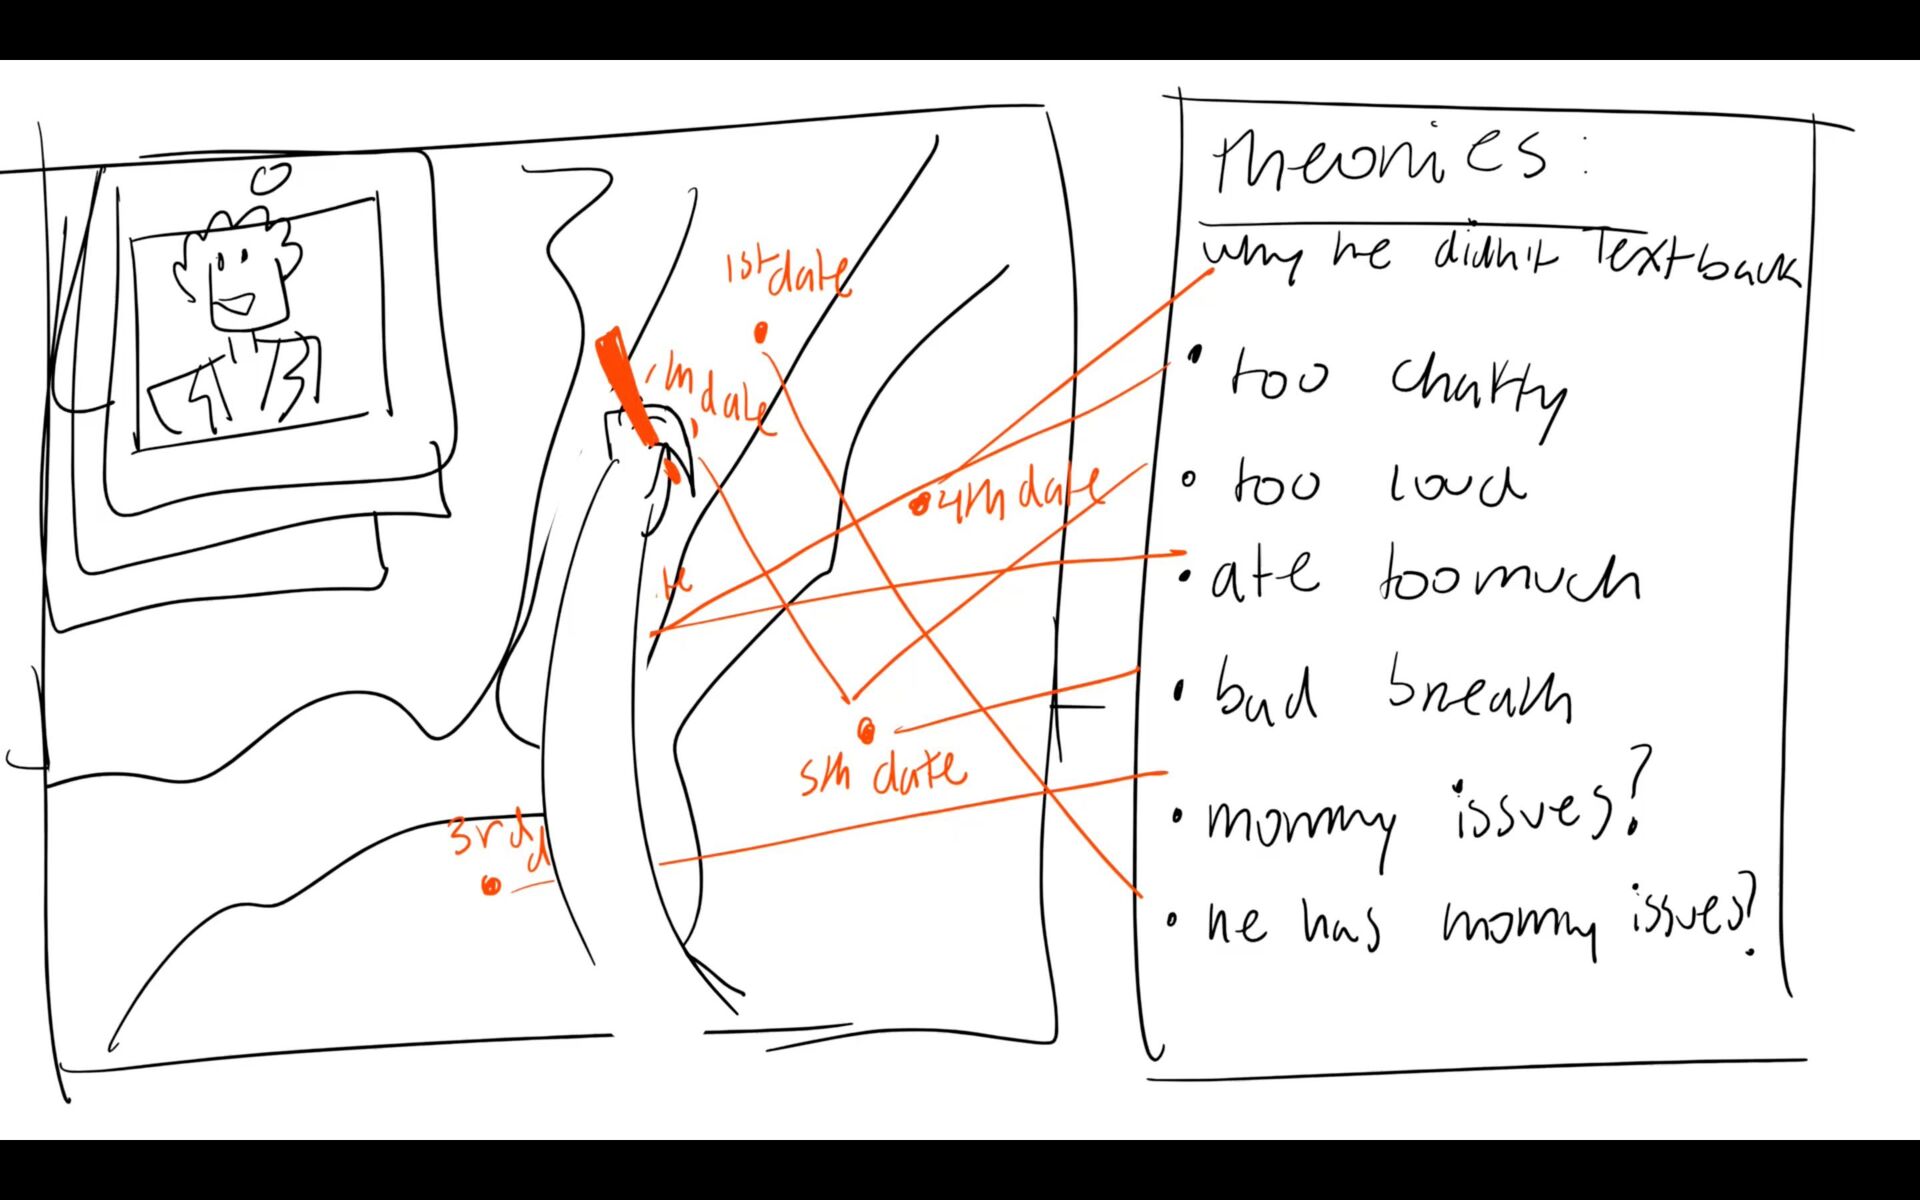 theories:
why he didn't text back
• too chatty
• too loud
• ate too much
• bad breath
• mommy issues?
• he has mommy issues?
1st date
date
4th date
5th date
3rd d